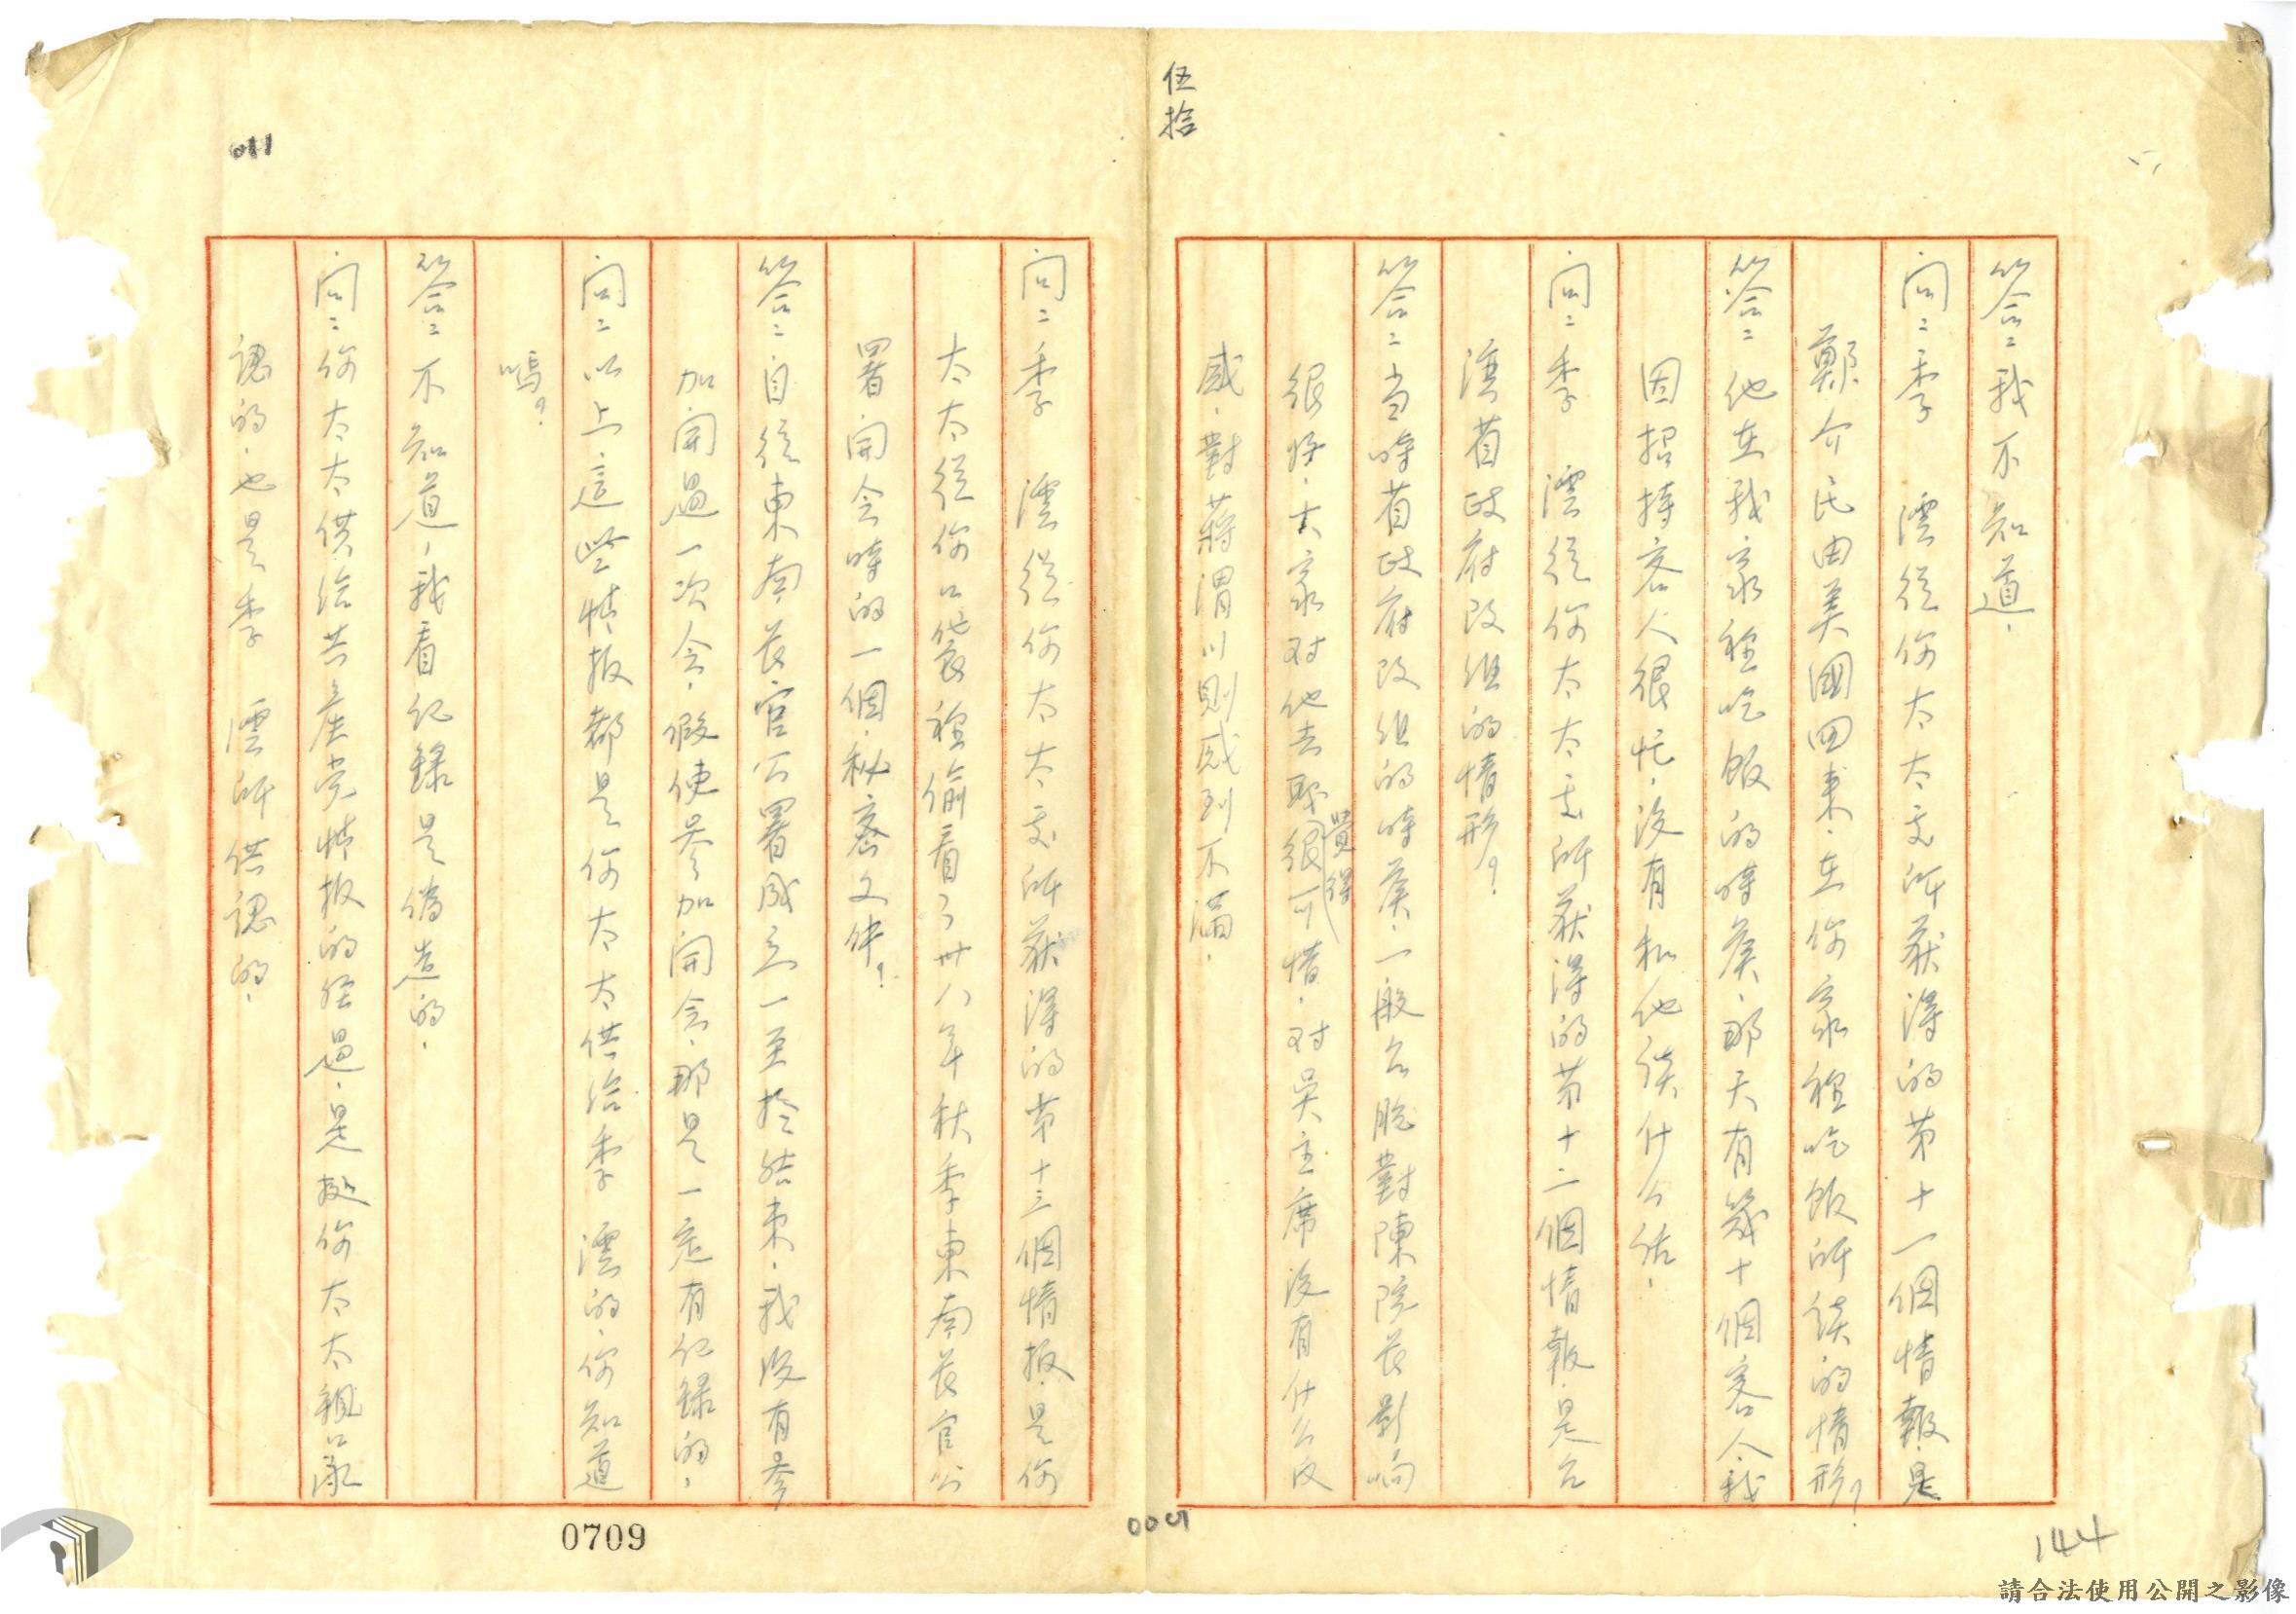 伍拾
答：我不知道，
問：季　澐從你太太處所獲得的第十一個情報，是
鄭介民由美國回来，在你家裡吃飯所談的情形？
答：他在我家裡吃飯的時候，那天有幾十個客人，我
因招待客人很忙，没有和他談什么話，
問：季　澐從你太太處所獲得的第十二個情報，是台
湾省政府改組的情形？
答：当時省政府改组的時候，一般台胞對陳院長影响
很好，大家对他去职覺得很可惜，对吳主席没有什么反
感，對蔣渭川則感到不滿，
問：季　澐從你太太處所獲得的第十三個情报，是你
太太從你口袋裡偷看了卅八年秋季東南長官公
署開会時的一個秘密文件？
答：自從東南長官公署成立一至於結束，我没有參
加開過一次会，假使參加開会，那是一定有纪錄的，
問：以上這些情报都是你太太供给季　澐的，你知道
嗎？
答：不知道，我看纪錄是偽造的，
問：你太太供给共產党情报的經過，是挺你太太親口承
認的，也是季　澐所供認的，
0709
144
請合法使用公開之影像